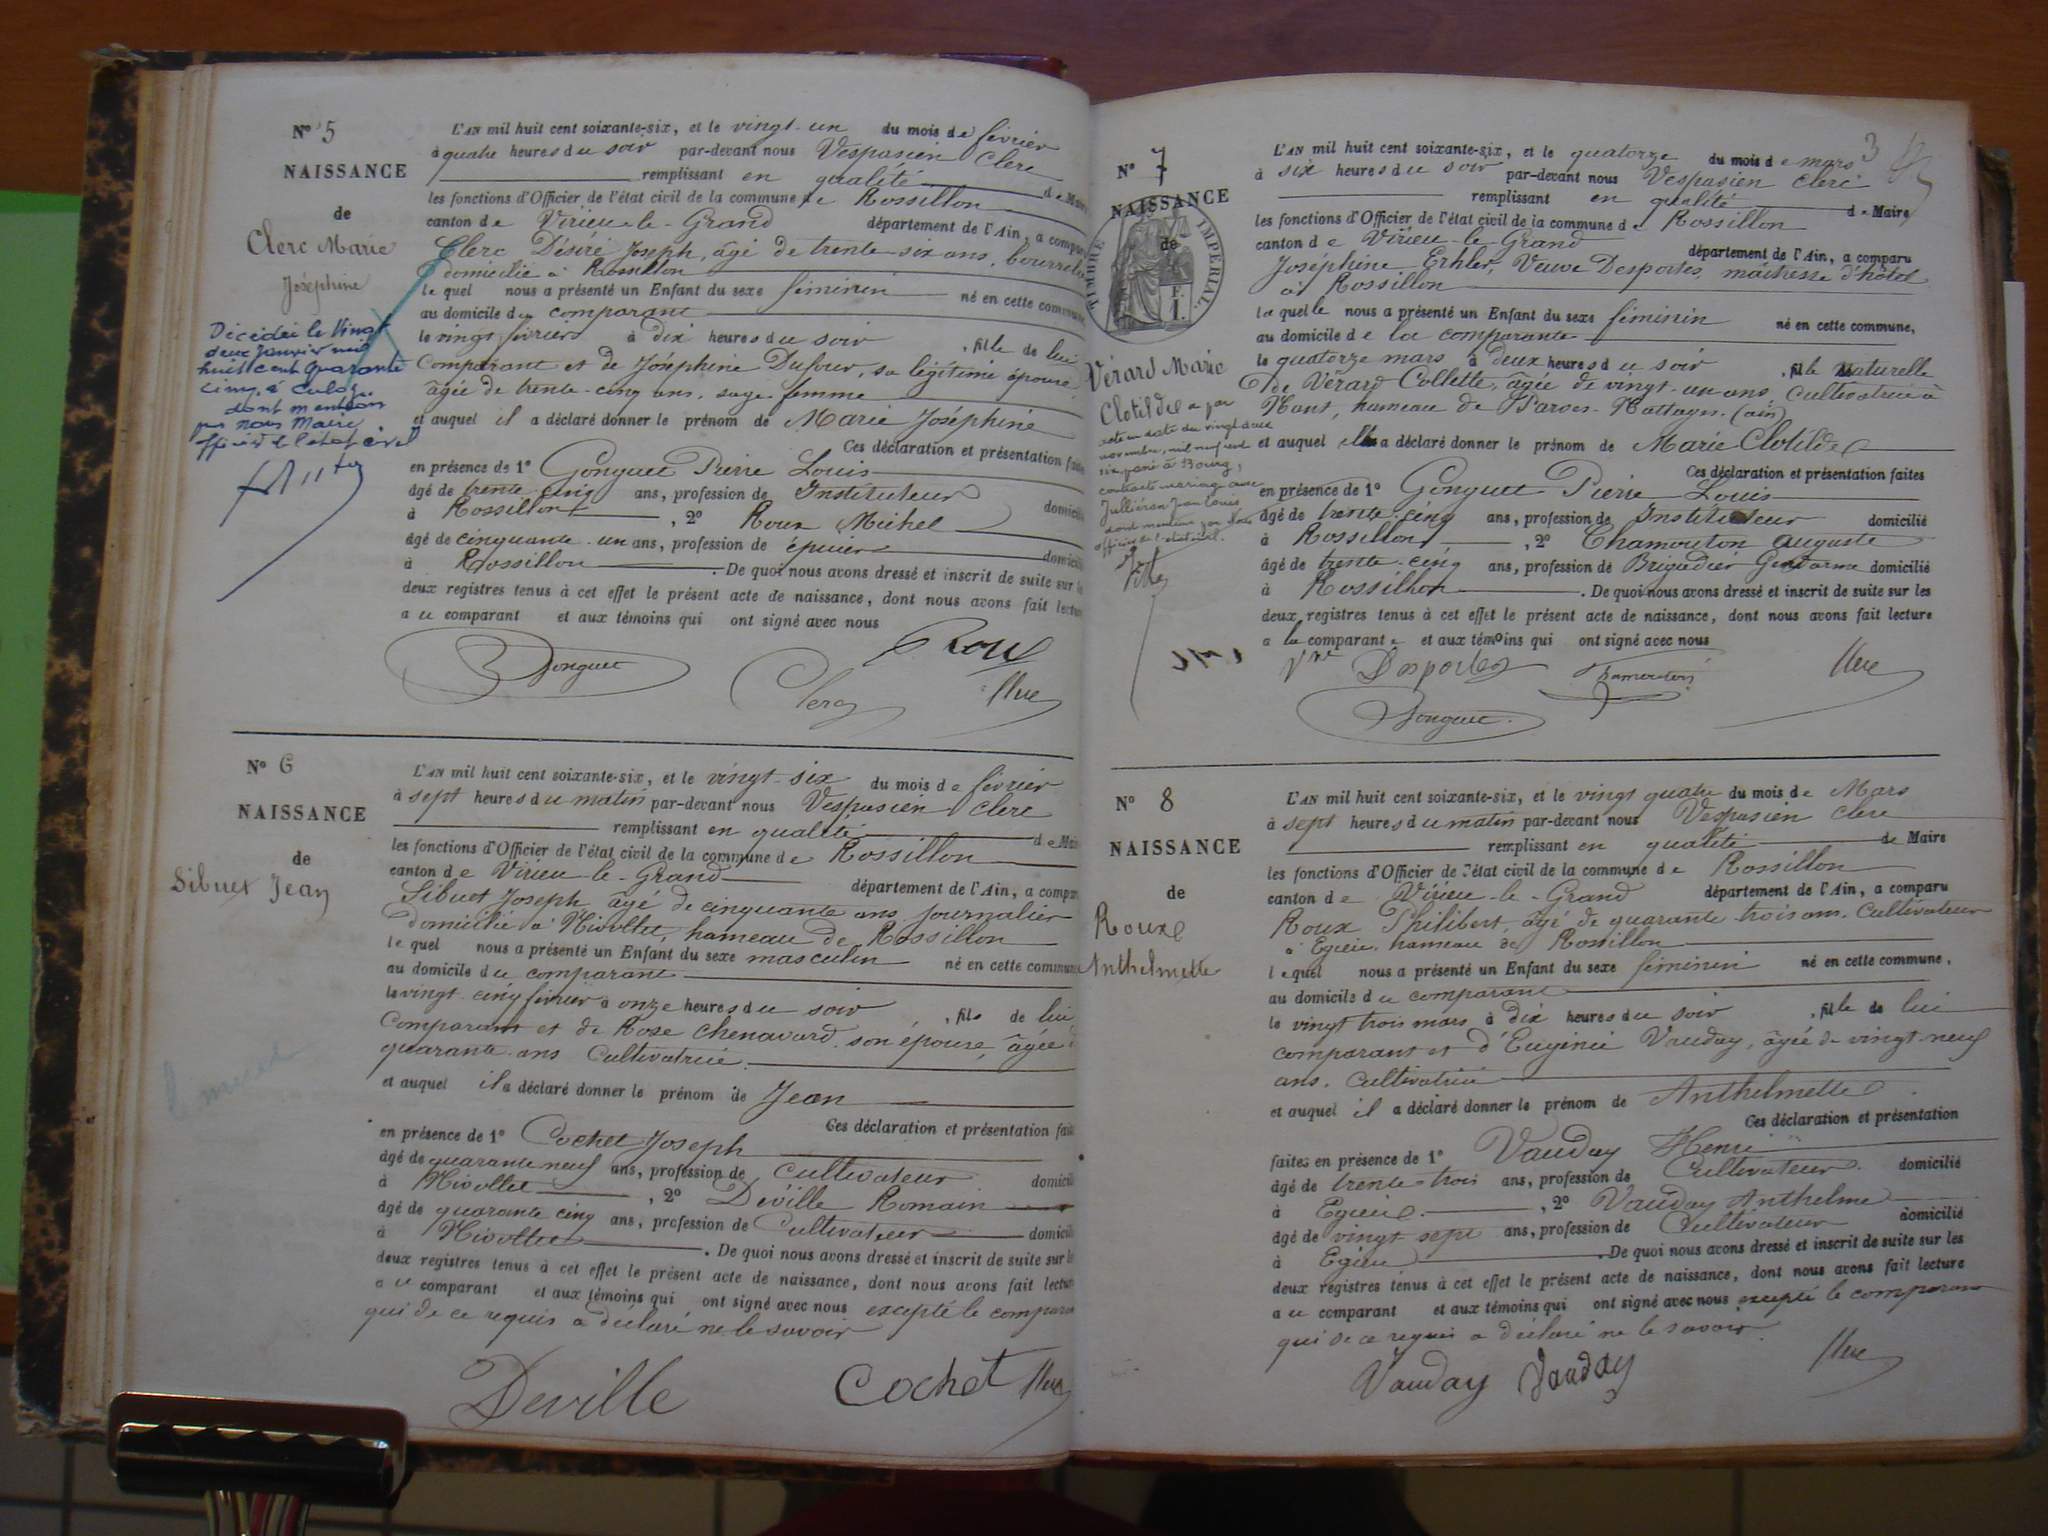 N° 5
NAISSANCE
de
Clerc Marie
Joséphine
Décédée le Vingt
deux Janvier mil
huit cent quarante
cinq à Culoz
dont mention
par nous Maire
officier de l'état civil
L'AN mil huit cent soixante-six, et le vingt-un du mois de février
à quatre heures du soir par-devant nous Vespasien Clerc
remplissant en qualité de Maire
les fonctions d'Officier de l'état civil de la commune de Rossillon
canton de Virieu-le-Grand département de l'Ain, a compar
Clerc Désiré Joseph, âgé de trente six ans, bourrelier
domicilié à Rossillon
lequel nous a présenté un Enfant du sexe féminin né en cette commune,
au domicile du comparant
le vingt février à dix heures du soir, fille de lui
comparant et de Joséphine Dufour, sa légitime épouse
âgée de trente-cinq ans, sage-femme
et auquel il a déclaré donner le prénom de Marie Joséphine
Ces déclaration et présentation faites
en présence de 1° Gonguet Pierre Louis
âgé de trente-cinq ans, profession de Instituteur domicilié
à Rossillon, 2° Roux Michel
âgé de cinquante-un ans, profession de épicier domicilié
à Rossillon. De quoi nous avons dressé et inscrit de suite sur les
deux registres tenus à cet effet le présent acte de naissance, dont nous avons fait lecture
a ce comparant et aux témoins qui ont signé avec nous
Gonguet
Clerc
Roux
Clerc
N° 6
NAISSANCE
de
Sibuet Jean
L'AN mil huit cent soixante-six, et le vingt-six du mois de février
à sept heures du matin par-devant nous Vespasien Clerc
remplissant en qualité de Maire
les fonctions d'Officier de l'état civil de la commune de Rossillon
canton de Virieu-le-Grand département de l'Ain, a compar
Sibuet Joseph âgé de cinquante ans journalier
domicilié à Nivollet, hameau de Rossillon
lequel nous a présenté un Enfant du sexe masculin né en cette commune
au domicile du comparant
le vingt-cinq février à onze heures du soir, fils de lui
comparant et de Rose Chenavard son épouse, âgée d
quarante ans Cultivatrice.
et auquel il a déclaré donner le prénom de Jean
Ces déclaration et présentation fait
en présence de 1° Cochet Joseph
âgé de quarante neuf ans, profession de Cultivateur domicili
à Nivollet, 2° Deville Romain
âgé de quarante cinq ans, profession de Cultivateur domicili
à Nivollet. De quoi nous avons dressé et inscrit de suite sur le
deux registres tenus à cet effet le présent acte de naissance, dont nous avons fait lectur
a ce comparant et aux témoins qui ont signé avec nous excepté le comparan
qui de ce requis a déclaré ne le savoir
Deville Cochet Clerc
3
N° 7
NAISSANCE
de
TIMBRE IMPÉRIAL
Vérard Marie
Clotilde a par
acte en date du vingt deux
novembre, mil neuf cent
six passé à Bourg,
contracté mariage avec
Jullieron Jean Louis
dont mention par Nous
officier de l'état civil.
L'AN mil huit cent soixante-six, et le quatorze du mois de mars
à six heures du soir par-devant nous Vespasien Clerc
remplissant en qualité de Maire
les fonctions d'Officier de l'état civil de la commune de Rossillon
canton de Virieu-le-Grand département de l'Ain, a comparu
Joséphine Erhler, Veuve Desportes, maîtresse d'hôtel
à Rossillon
laquelle nous a présenté un Enfant du sexe féminin né en cette commune,
au domicile de la comparante
le quatorze mars à deux heures du soir, fille naturelle
de Vérard Collette, âgée de vingt-un ans, cultivatrice à
Nant, hameau de Parves-Nattages (ain)
et auquel elle a déclaré donner le prénom de Marie Clotilde
Ces déclaration et présentation faites
en présence de 1° Gonguet Pierre Louis
âgé de trente-cinq ans, profession de Instituteur domicilié
à Rossillon, 2° Chamouton Auguste
âgé de trente-cinq ans, profession de Brigadier Gendarme domicilié
à Rossillon. De quoi nous avons dressé et inscrit de suite sur les
deux registres tenus à cet effet le présent acte de naissance, dont nous avons fait lecture
a la comparante et aux témoins qui ont signé avec nous
Vve Desportes Chamouton Clerc
Gonguet
N° 8
NAISSANCE
de
Roux
Anthelmette
L'AN mil huit cent soixante-six, et le vingt quatre du mois de Mars
à sept heures du matin par-devant nous Vespasien Clerc
remplissant en qualité de Maire
les fonctions d'Officier de l'état civil de la commune de Rossillon
canton de Virieu-le-Grand département de l'Ain, a comparu
Roux Philibert, âgé de quarante trois ans, Cultivateur
à Egieu, hameau de Rossillon
lequel nous a présenté un Enfant du sexe féminin né en cette commune,
au domicile du comparant
le vingt trois mars à dix heures du soir, fille de lui
comparant et d'Eugénie Vauday, âgée de vingt-neuf
ans, cultivatrice
et auquel il a déclaré donner le prénom de Anthelmette
Ces déclaration et présentation
faites en présence de 1° Vauday Henri
âgé de trente-trois ans, profession de Cultivateur domicilié
à Egieu, 2° Vauday Anthelme
âgé de vingt sept ans, profession de Cultivateur domicilié
à Egieu. De quoi nous avons dressé et inscrit de suite sur les
deux registres tenus à cet effet le présent acte de naissance, dont nous avons fait lecture
a ce comparant et aux témoins qui ont signé avec nous excepté le comparant
qui de ce requis a déclaré ne le savoir.
Vauday Vauday Clerc